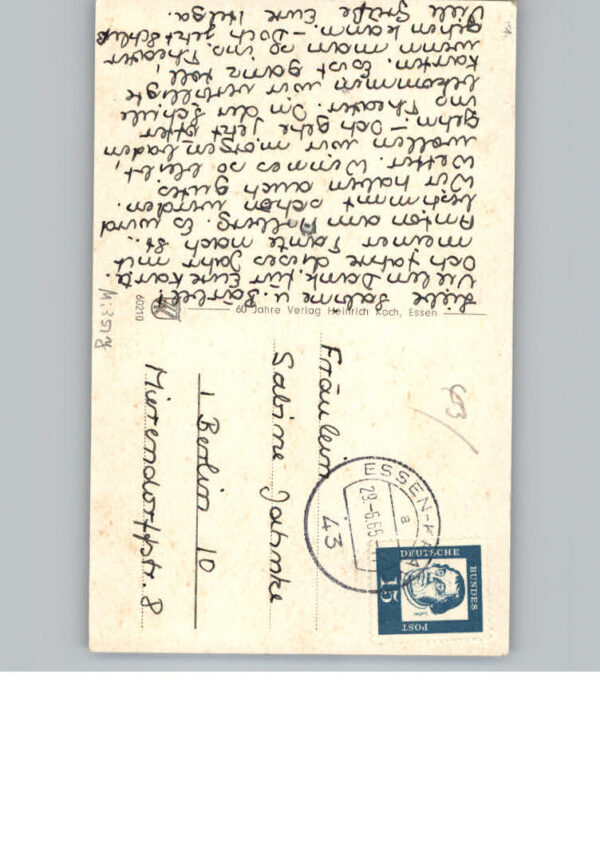 Liebe Sabine u. Bärbel!
Vielen Dank für Eure Karte.
Ich fahre dieses Jahr mit
meiner Tante nach St.
Anton am Arlberg. Es wird
bestimmt schön werden.
Wir haben auch gutes
Wetter. Wenn es so bleibt,
wollen wir morgen baden
gehn. – Ich gehe jetzt öfter
ins Theater. In der Schule
bekommen wir verbilligte
Karten. Es ist ganz toll,
wenn man so ins Theater
gehen kann. – Doch jetzt Schluß
Viele Grüße Eure Helga.
60210
60 Jahre Verlag Heinrich Koch, Essen
Fräulein
Sabine Jahnke
1 Berlin 10
Mierendorffstr. 8
43
a
DEUTSCHE
BUNDES
POST
15
Luther